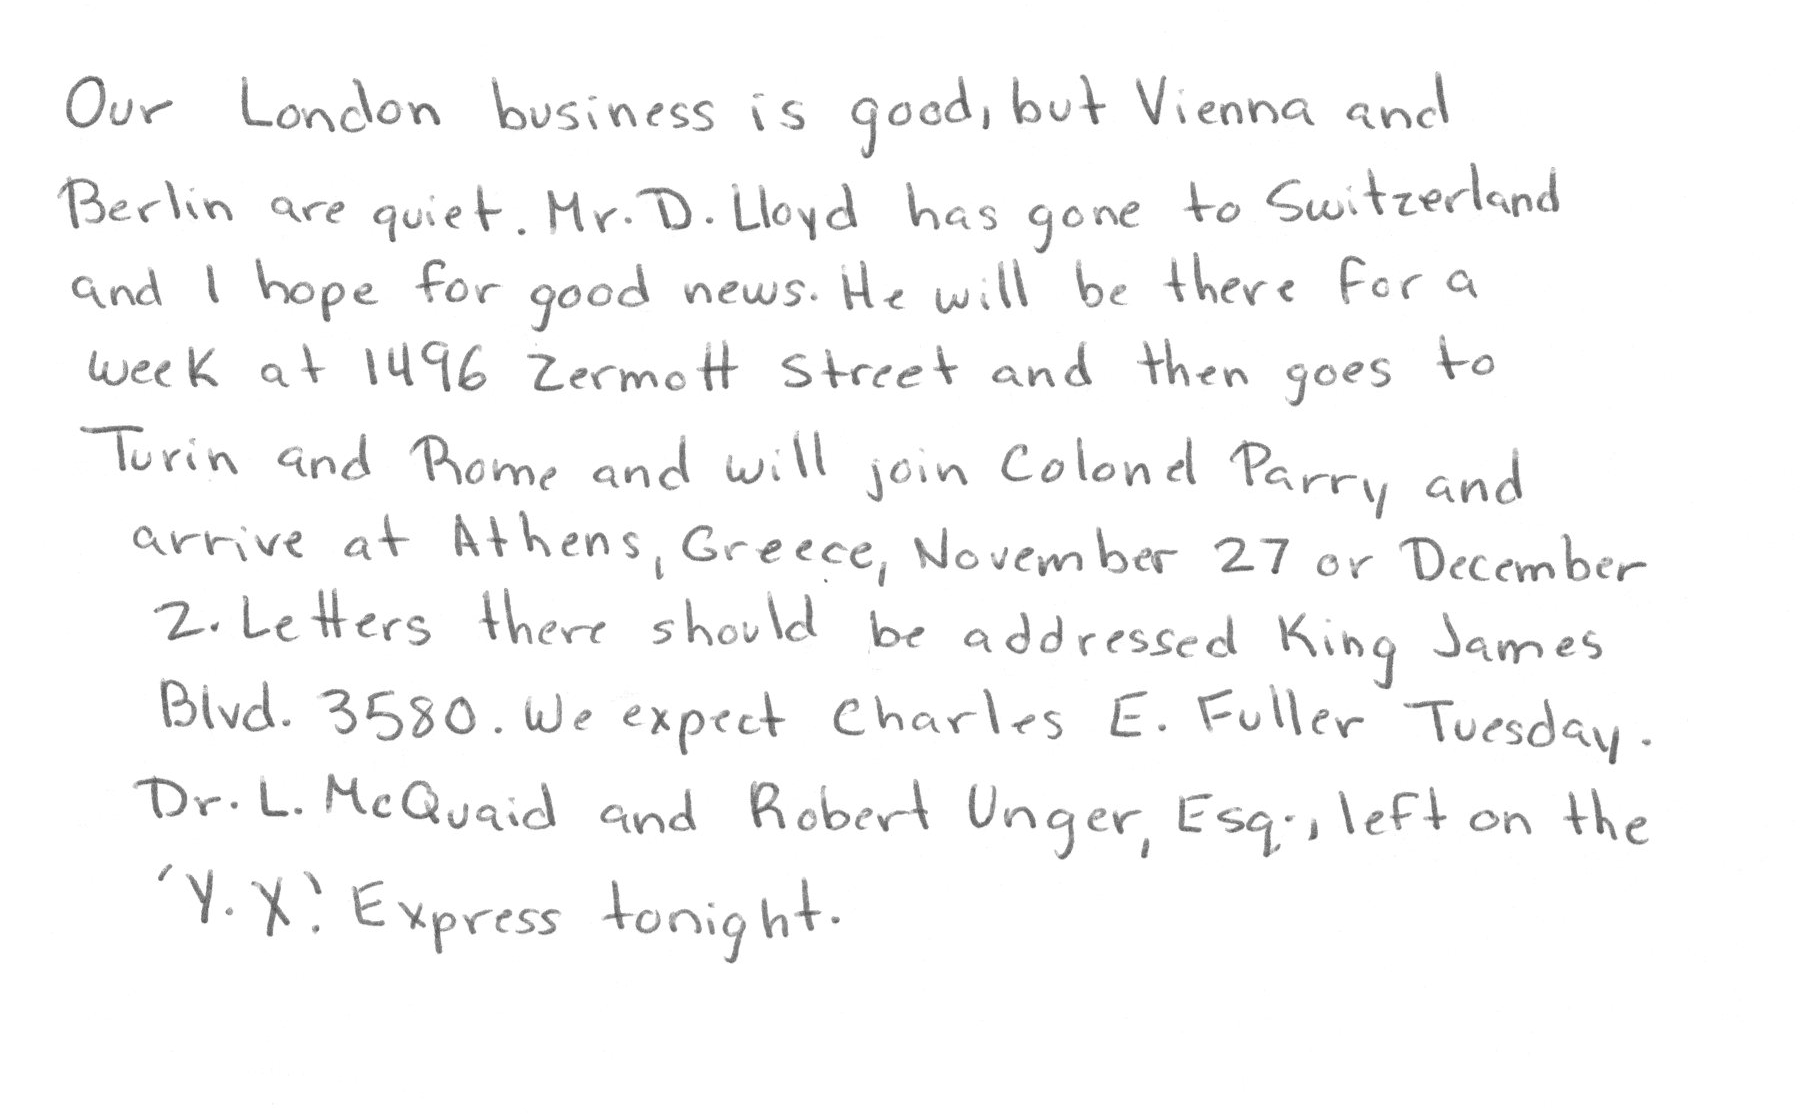 Our London business is good, but Vienna and
Berlin are quiet. Mr. D. Lloyd has gone to Switzerland
and I hope for good news. He will be there for a
week at 1496 Zermott Street and then goes to
Turin and Rome and will join Colonel Parry and
arrive at Athens, Greece, November 27 or December
2. Letters there should be addressed King James
Blvd. 3580. We expect Charles E. Fuller Tuesday.
Dr. L. McQuaid and Robert Unger, Esq., left on the
'Y. X.' Express tonight.